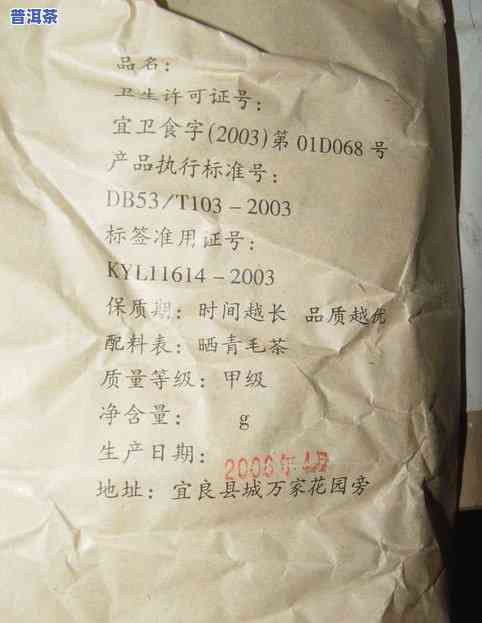 普洱茶
品名：
卫生许可证号：
宜卫食字(2003)第 01D068 号
产品执行标准号：
DB53/T103－2003
标签准用证号：
KYL11614－2003
保质期：时间越长 品质越优
配料表：晒青毛茶
质量等级：甲级
净含量： g
生产日期：2006年4月
地址：宜良县城万家花园旁